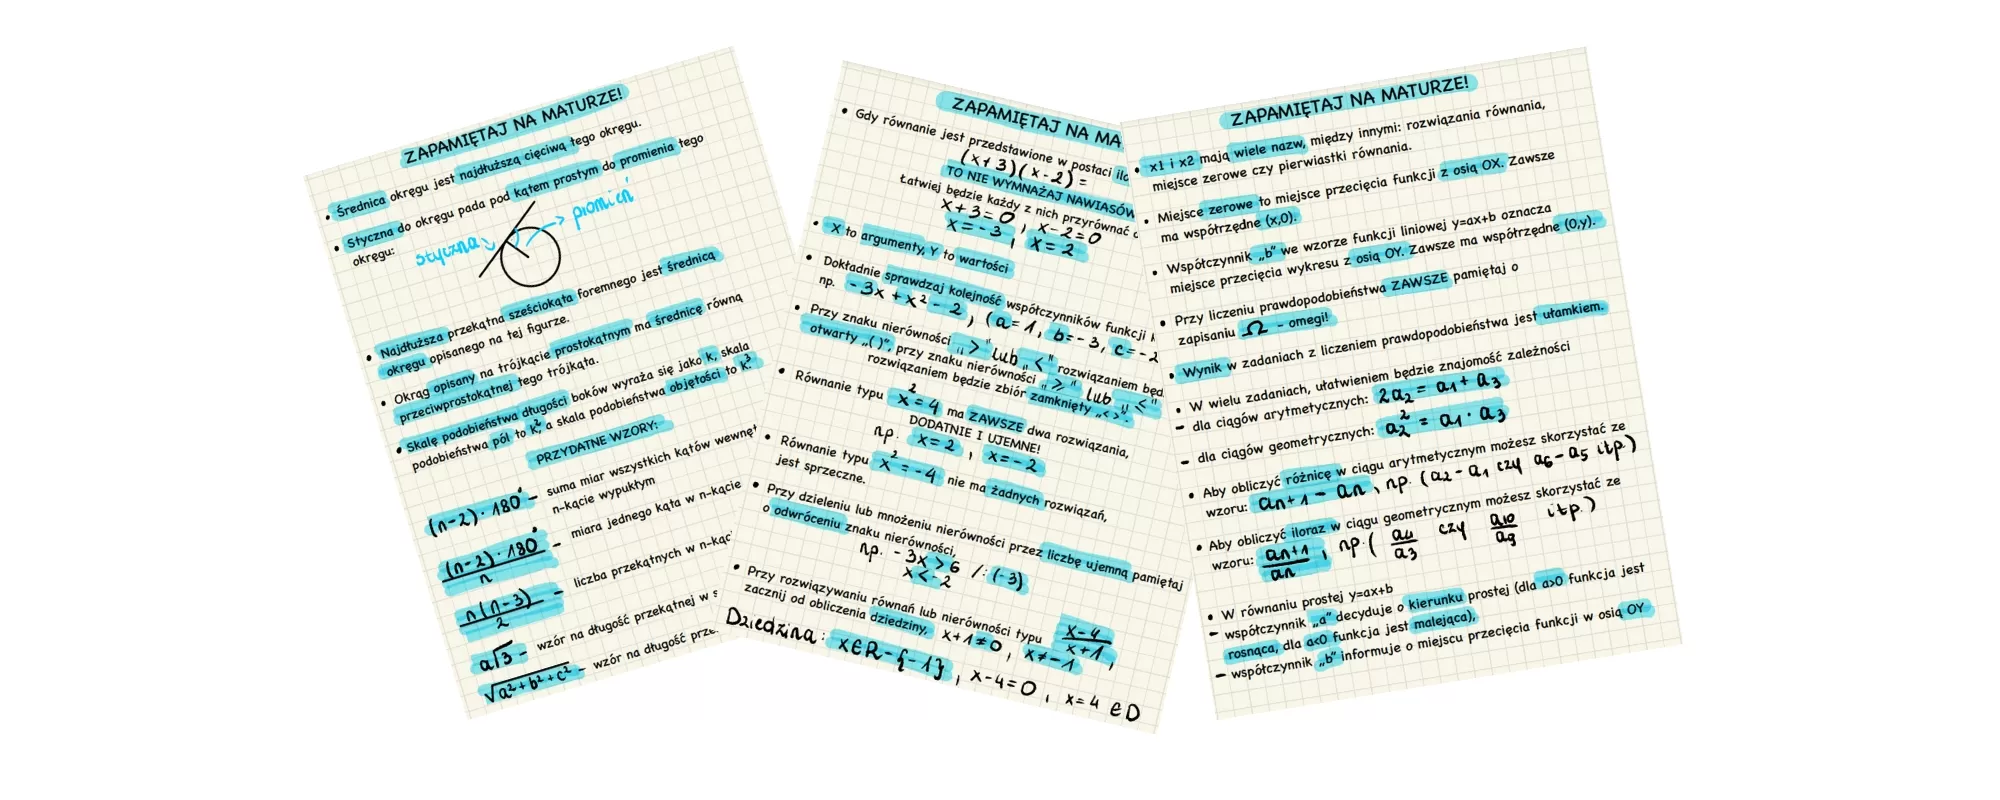 ZAPAMIĘTAJ NA MATURZE!
• Średnica okręgu jest najdłuższą cięciwą tego okręgu.
• Styczna do okręgu pada pod kątem prostym do promienia tego
okręgu:
styczna
promień
• Najdłuższa przekątna sześciokąta foremnego jest średnicą
okręgu opisanego na tej figurze.
• Okrąg opisany na trójkącie prostokątnym ma średnicę równą
przeciwprostokątnej tego trójkąta.
• Skalę podobieństwa długości boków wyraża się jako k, skala
podobieństwa pól to k², a skala podobieństwa objętości to k³.
PRZYDATNE WZORY:
(n-2)·180° – suma miar wszystkich kątów
n-kącie wypukłym
(n-2)·180° / n – miara jednego kąta w n-kącie
n(n-3) / 2 – liczba przekątnych w
a√3 – wzór na długość przekątnej w
√a²+b²+c² – wzór na długość
ZAPAMIĘTAJ NA
• Gdy równanie jest przedstawione w postaci
(x+3)(x-2) =
TO NIE WYMNAŻAJ NAWIASÓW
Łatwiej będzie każdy z nich przyrównać
x+3=0 , x-2=0
x=-3 , x=2
• X to argumenty, Y to wartości
• Dokładnie sprawdzaj kolejność współczynników funkcji
np. -3x+x²-2 , (a=1, b=-3, c=-2
• Przy znaku nierówności „>" lub „<" rozwiązaniem
otwarty „( )", przy znaku nierówności „≥" lub „≤"
rozwiązaniem będzie zbiór zamknięty „< >".
• Równanie typu x²=4 ma ZAWSZE dwa rozwiązania,
DODATNIE I UJEMNE!
np. x=2 , x=-2
• Równanie typu x²=-4 nie ma żadnych rozwiązań,
jest sprzeczne.
• Przy dzieleniu lub mnożeniu nierówności przez liczbę ujemną pamiętaj
o odwróceniu znaku nierówności,
np. -3x>6 /:(-3)
x<-2
• Przy rozwiązywaniu równań lub nierówności typu x-4 / x+1 ,
zacznij od obliczenia dziedziny, x+1≠0 , x≠-1
Dziedzina: x∈R-{-1} , x-4=0 , x=4 ∈D
ZAPAMIĘTAJ NA MATURZE!
• x1 i x2 mają wiele nazw, między innymi: rozwiązania równania,
miejsce zerowe czy pierwiastki równania.
• Miejsce zerowe to miejsce przecięcia funkcji z osią OX. Zawsze
ma współrzędne (x,0).
• Współczynnik „b" we wzorze funkcji liniowej y=ax+b oznacza
miejsce przecięcia wykresu z osią OY. Zawsze ma współrzędne (0,y).
• Przy liczeniu prawdopodobieństwa ZAWSZE pamiętaj o
zapisaniu Ω - omegi!
• Wynik w zadaniach z liczeniem prawdopodobieństwa jest ułamkiem.
• W wielu zadaniach, ułatwieniem będzie znajomość zależności
– dla ciągów arytmetycznych: 2a₂ = a₁ + a₃
– dla ciągów geometrycznych: a₂² = a₁ · a₃
• Aby obliczyć różnicę w ciągu arytmetycznym możesz skorzystać ze
wzoru: an+1 - an , np. (a₂-a₁ czy a₆-a₅ itp.)
• Aby obliczyć iloraz w ciągu geometrycznym możesz skorzystać ze
wzoru: an+1 / an , np. ( a₄ / a₃ czy a₁₀ / a₉ itp.)
• W równaniu prostej y=ax+b
– współczynnik „a" decyduje o kierunku prostej (dla a>0 funkcja jest
rosnąca, dla a<0 funkcja jest malejąca),
– współczynnik „b" informuje o miejscu przecięcia funkcji w osią OY